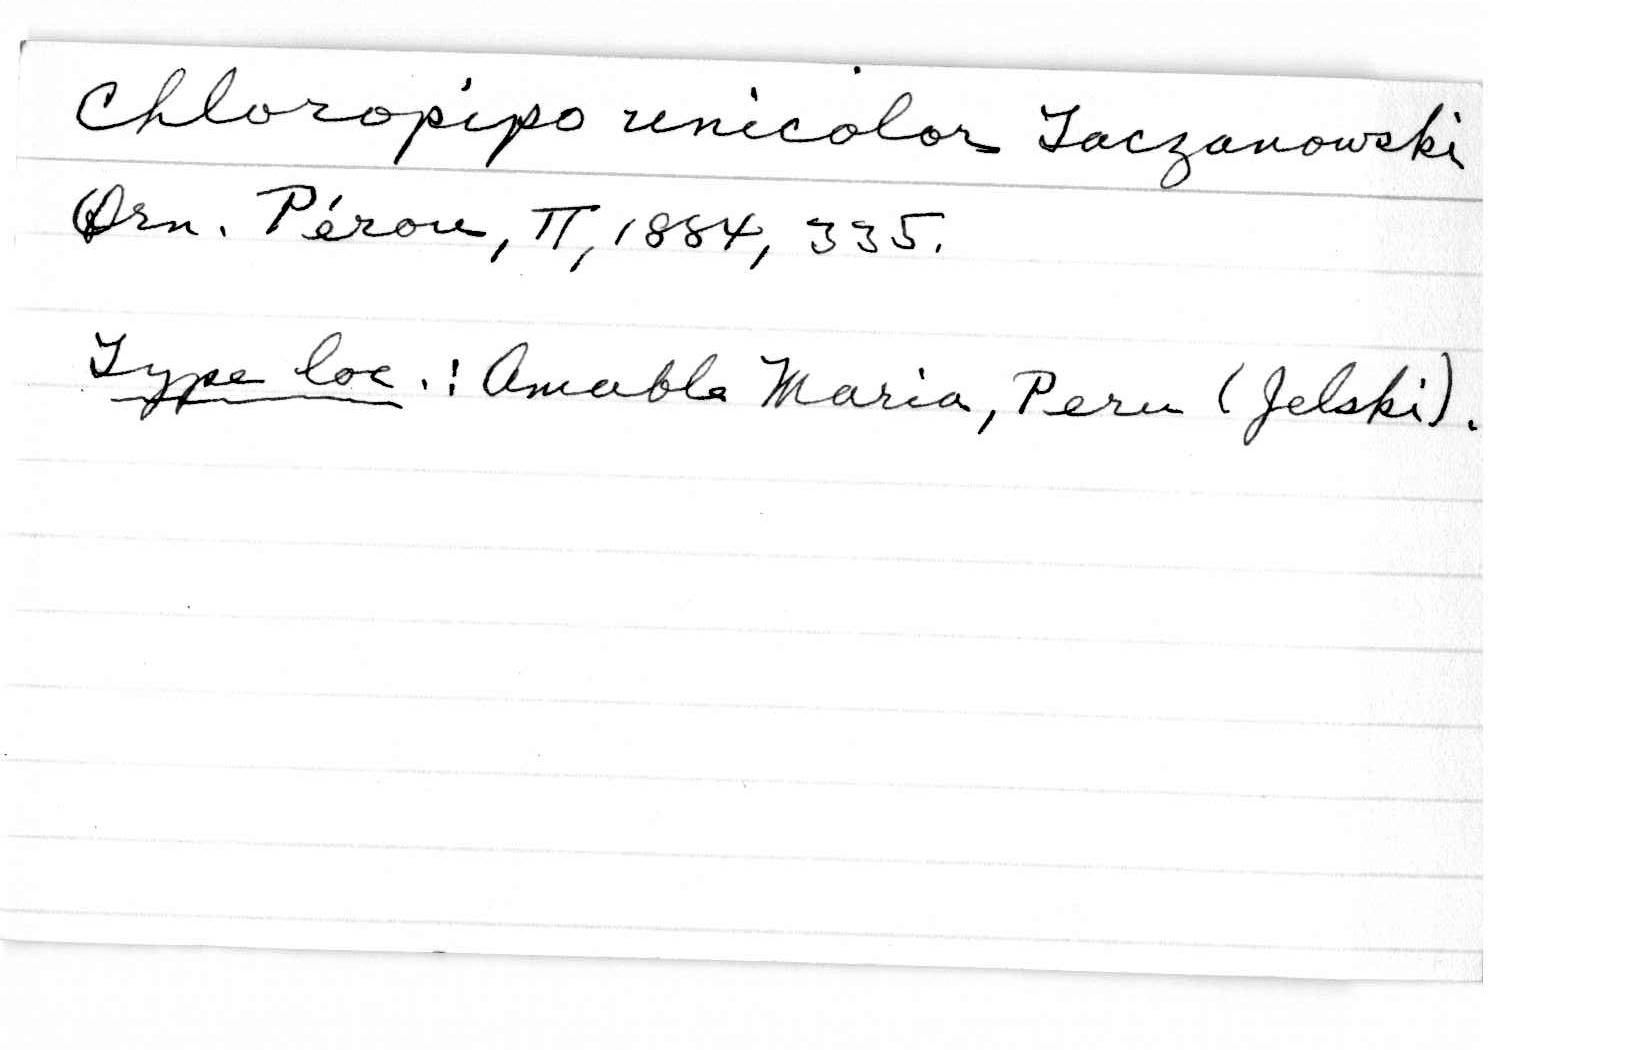 Chloropipo unicolor Taczanowski
Orn. Pérou, II, 1884, 335.
Type loc.: Amable Maria, Peru (Jelski).